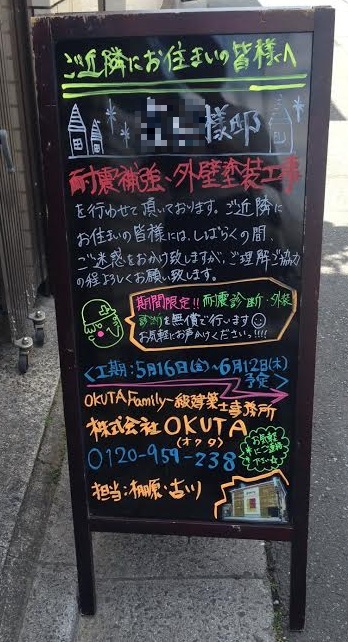 ご近隣にお住まいの皆様へ
様邸
耐震補強、外壁塗装工事
を行わせて頂いております。ご近隣に
お住まいの皆様には、しばらくの間、
ご迷惑をおかけ致しますが、ご理解ご協力
の程よろしくお願い致します。
期間限定!!耐震診断・外装
診断を無償で行います
お気軽にお声かけください!!!!
<工期:5月16日(金)~6月12日(木)
予定>
OKUTA Family一級建築士事務所
株式会社OKUTA
(オクタ)
0120-959-238
お気軽
にご連絡
下さい
担当:棚原・古川